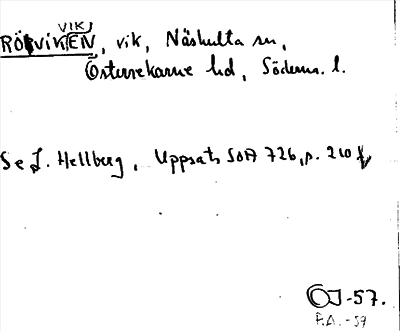 VIK
RÖRVIKEN, vik, Näshulta sn,
Österrekarne hd, Söderm. l.
Se L. Hellberg, Uppsats SOA 726, s. 210 f,
OJ-57.
P.A. -59